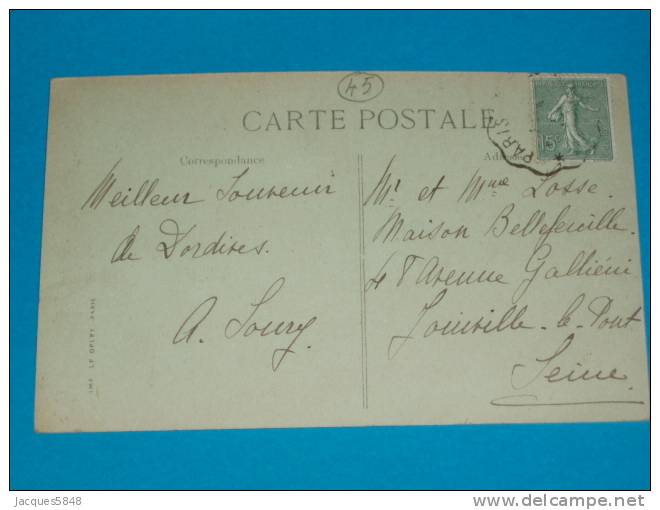 45
CARTE POSTALE
Correspondance
PARIS
15c
Meilleur Souvenir
de Dordives.
A. Soury
Mr et Mme Losse.
Maison Bellefeuille.
Avenue Galliéni
Joinville-le-Pont
Seine
IMP. LE DELEY, PARIS
Jacques5848
delcampe.net